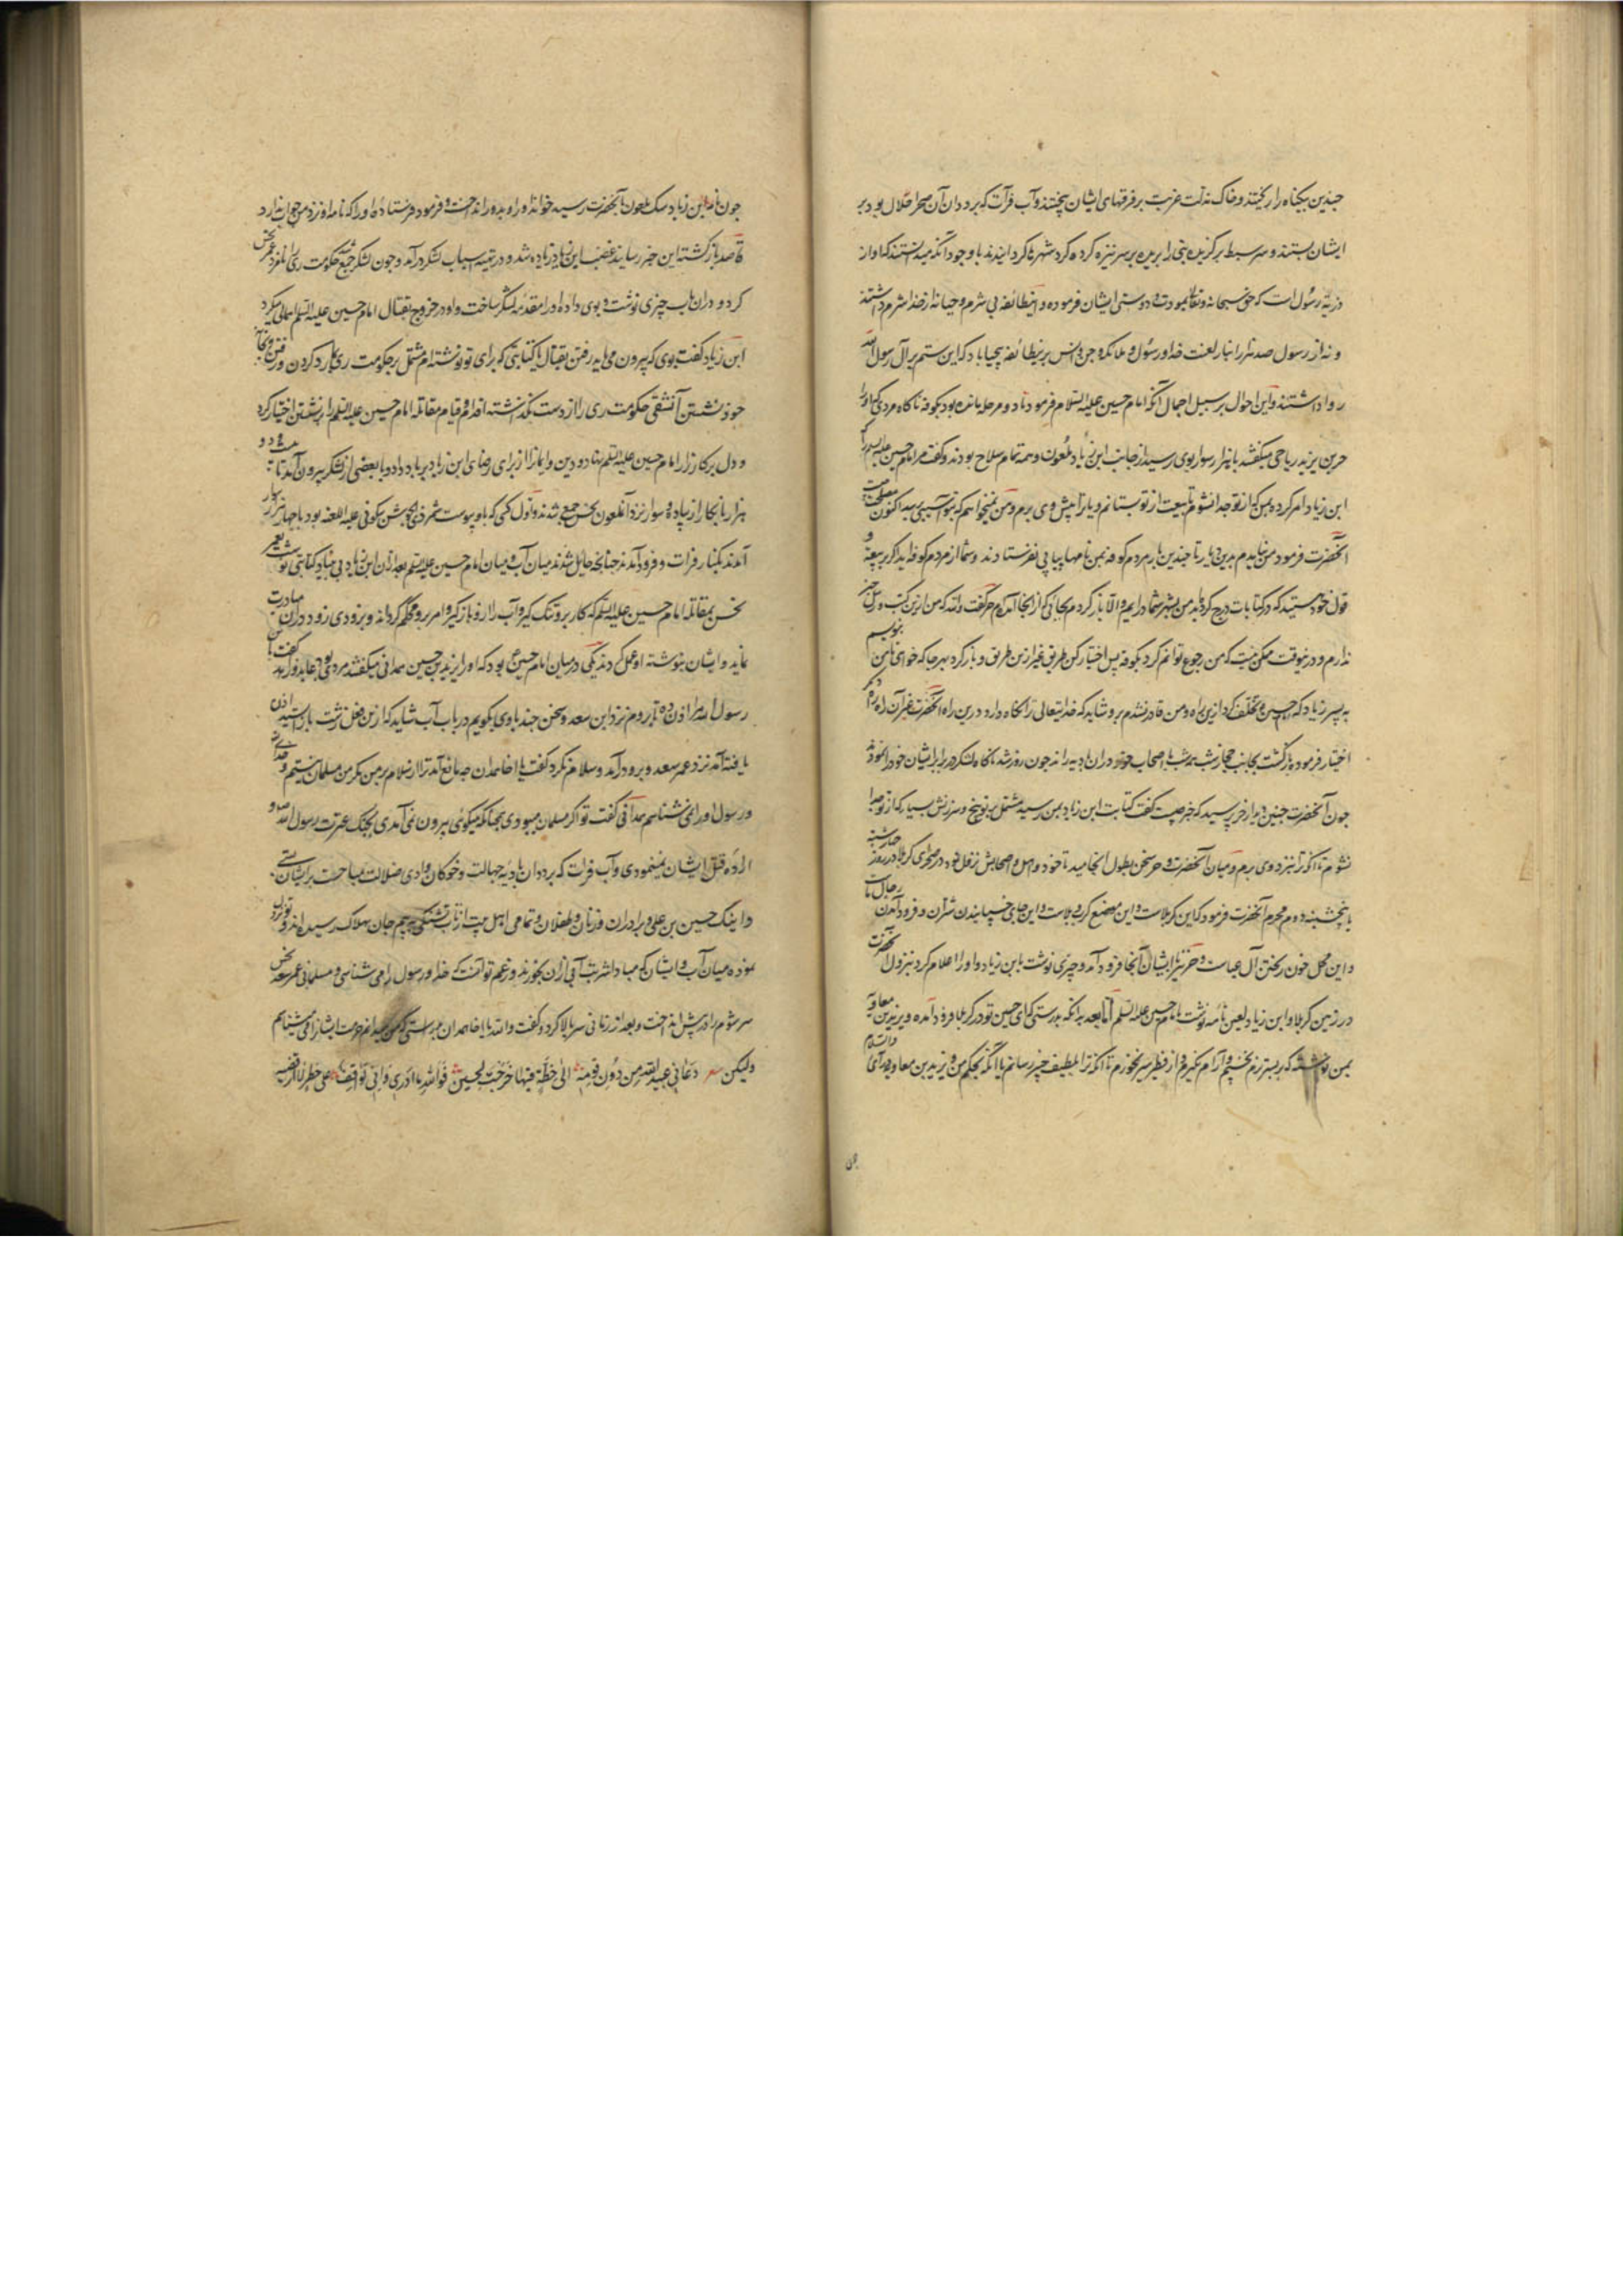 چندین بیکناه را ریختند و خاک مذلت غربت بر فرقهای ایشان بیختند و آب فرات که بر ددان آن صحرا حلال بود بر
ایشان بستند و سر سبط برگزیده نبی را بریده بر سر نیزه کرده گرد شهرها گردانیدند با وجود آنکه میدانستند که او از
ذریّه رسول است که حق سبحانه و تعالی بمودت و دوستی ایشان فرموده و این طائفه بی شرم و حیا نه از خدا شرم داشتند
و نه از رسول صد هزاران بار لعنت خدا و رسول و ملائکه و جن و انس برین طائفه بیحیا باد که این ستم بر آل رسول الله
روا داشتند و این احوال بر سبیل اجمال آنکه امام حسین علیه السلام فرمود تا دو مرحله مانده بود بکوفه ناکاه مردی که او را
حر بن یزید ریاحی میکفتند با هزار سوار بوی رسید از جانب ابن زیاد ملعون و همه تمام سلاح بودند و کفت مر امام حسین علیه السلام را
ابن زیاد امر کرده بمن که از تو جدا نشوم تا بیعت از تو بستانم و یا ترا پیش وی برم و من نمیخواهم که بتو آسیبی رسد اکنون مصلحت چیست
آنحضرت فرمود من نیامدم بدین دیار تا چندین بار مردم کوفه بمن نامها پیاپی نفرستادند و شما از مردم کوفه اید اگر بر بیعت و
قول خود هستید که در کتابات درج کرده اید من بشهر شما درایم و الا باز کردم بجائی که از انجا آمده ام حر کفت والله که من ازین کتب و رسل خبر
ندارم و درینوقت ممکن نیست که من رجوع توانم کرد بکوفه پس اختیار کن طریق غیر ازین طریق و باز کرد بهر جا که خواهی تا من بنویسم
به پسر زیاد که حسین تخلف کرد ازین راه و من قادر نشدم برو شاید که خدایتعالی ترا نکاه دارد درین راه آنحضرت غیر آن راه راه دکر
اختیار فرموده بازگشت بجانب حجاز شب همه شب با اصحاب خود در ان بادیه راند چون روز شد ناکاه لشکر حر برابر ایشان خود را نمود
چون آنحضرت چنین دید از حر پرسید که خبر چیست کفت کتابت ابن زیاد بمن رسید مشتمل بر توبیخ و سرزنش بسیار که از تو جدا
نشوم تا آنکه ترا نزد وی برم و میان آنحضرت و حر سخن بطول انجامید تا خود و اهل و اصحابش نزول نمود در صحرای کربلا در روز چهارشنبه
یا پنجشنبه دوم محرم آنحضرت فرمود که این کربلاست و این موضع کرب و بلاست و این جای خسپانیدن شتران و فرود آمدن رحال ماست
و این محل خون ریختن آل عباست و حر نیز با ایشان آنجا فرود آمد و چیزی نوشت بابن زیاد و او را اعلام کرد بنزول آنحضرت
در زمین کربلا و ابن زیاد لعین نامه نوشت بامام حسین علیه السلام اما بعد بدانکه بدرستی که ای حسین تو در کربلا فرود آمده و یزید بن معاویه
بمن نوشته که بر بستر نرم نخسپم و آرام نکیرم و از فطیر سیر نخورم تا آنکه ترا بلطیف خبیر رسانم یا آنکه بحکم من و یزید بن معاویه درآی والسلام
چون
چون نامه ابن زیاد سک ملعون بآنحضرت رسید خواند او را و بدور انداخت و فرمود فرستاده او را که نامه او نزد من جواب ندارد
قاصد بازکشته این خبر رسانید غضب ابن زیاد زیاده شد و در تهیه اسباب لشکر درآمد و چون لشکر جمع شد حکومت ری را نامزد عمر نحس
کرد و در ان باب چیزی نوشت و بوی داد و او را مقدمه لشکر ساخت و او در خروج بقتال امام حسین علیه السلم اهمالی میکرد
ابن زیاد کفت بوی که بیرون می باید رفتن بقتال یا کتابتی که برای تو نوشته ام مشتمل بر حکومت ری باز رد کردن و رفتن و بخانه
خود نشستن آن شقی حکومت ری را از دست نکذاشته اقدام و قیام مقاتله امام حسین علیه السلم را بر نشستن اختیار کرد
و دل بر کارزار امام حسین علیه السلم بنهاد و دین و ایمان را از برای رضای ابن زیاد بر باد داد و با بعضی از لشکر بیرون آمد تا بیست و دو
هزار نابکار از پیاده و سوار نزد آنملعون نحس جمع شدند و اول کسی که باو پیوست شمر ذی الجوشن سکونی علیه اللعنه بود با چهار هزار سوار
آمدند بکنار فرات و فرود آمدند چنانچه حایل شدند میان آب و میان امام حسین علیه السلم بعد از ان ابن زیاد بی بنیاد کتابتی نوشت بعمر
نحس بمقاتله امام حسین علیه السلم که کار برو تنک کیر و آب را ازو باز کیر و امر برو محکم کردان و بزودی زود در ان مبادرت
نماید و ایشان بنوشته او عمل کردند یکی در میان امام حسین ع بود که او را یزید بن حصین همدانی میکفتند مردی بود عابد و زاهد کفت یا
رسول الله مرا اذن ده تا بروم نزد ابن سعد و سخن چند باوی بکویم در باب آب شاید که ازین فعل زشت باز ایستد اذن
یافته آمد نزد عمر سعد و برو درآمد و سلام نکرد کفت یا اخا همدان چه مانع آمد ترا از سلام بر من مکر من مسلمان نیستم و خدای
و رسول او را نمی شناسم همدانی کفت تو اگر مسلمان میبودی بجنانکه میکوئی بیرون نمی آمدی بجنک عترت رسول الله و
اراده قتل ایشان نمینمودی و آب فرات که بر ددان بادیه جهالت و خوکان وادی ضلالت مباحست بر ایشان نمی بستی
و اینک حسین بن علی و برادران و زنان و طفلان و تمامی اهل بیت از تاب تشنکی به بیم جان بهلاک رسیده اند و تو تردد
نموده میان آب و ایشان که مبادا شربت آبی از ان بخورند و زعم تو آنست که خدا و رسول را می شناسی و مسلمانی عمر سعد نحس
سر شوم را در پیش انداخت و بعد از زمانی سر بالا کرد و کفت والله یا اخا همدان براستی که من میدانم حرمت ایشان را و می شناسم
ولیکن شعر دعانی عبیدالله من دون قومه الی خطة فیها خرجت لحینی فوالله ما ادری وانی لواقف علی خطر لا ارتضیه